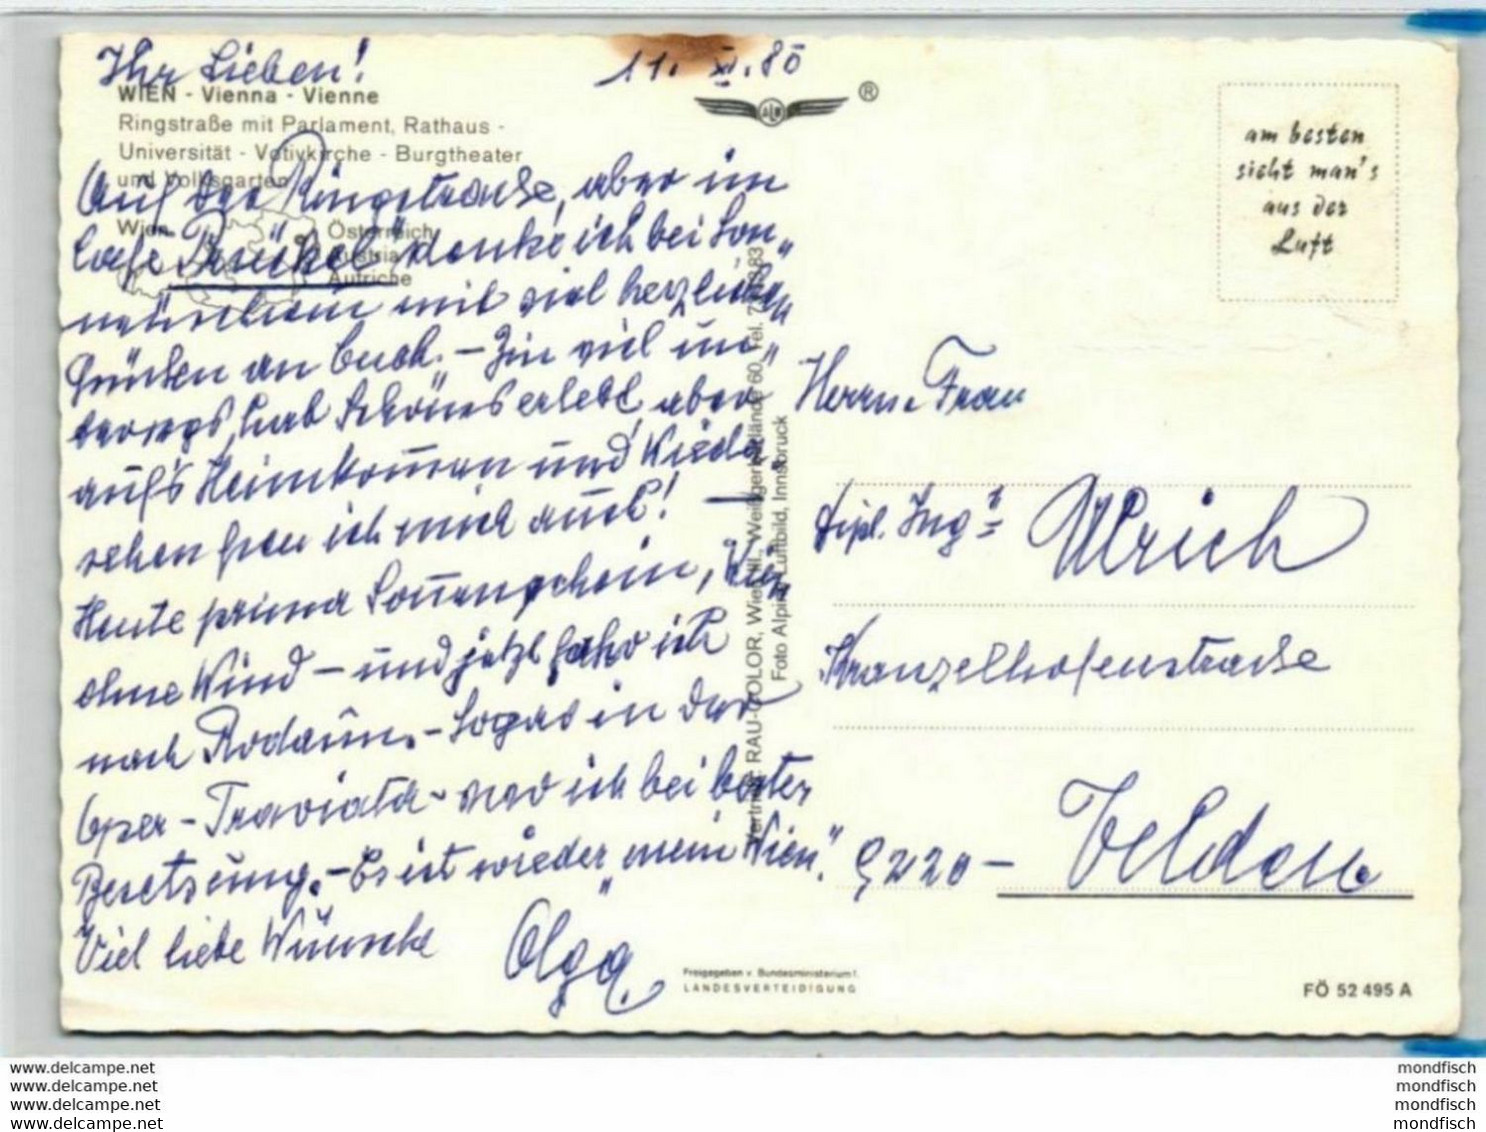 Ihr Lieben!
11. XI. 80
WIEN - Vienna - Vienne
Ringstraße mit Parlament, Rathaus -
Universität - Votivkirche - Burgtheater
und Volksgarten
Wien
Österreich
Austria
Autriche
ALPI
®
am besten
sieht man's
aus der
Luft
Auf der Ringstrasse, aber im
Cafe Prückel denke ich bei Son„
nenschein mit viel herzlichen
Grüßen an Euch. – Bin viel un„
terwegs, hab Schönes erlebt, aber
auf's Heimkommen und Wieder
sehen freu ich mich auch! –
Heute prima Sonnenschein, Wien
ohne Wind – und jetzt fahr ich
nach Rodaun. – Sogar in der
Oper – Traviata – war ich bei bester
Besetzung. – Es ist wieder „mein Wien".
Viel liebe Wünsche
Olga
Vertrieb: RAU-COLOR, Wien III., Weißgerberlände 60, Tel.
Foto Alpine Luftbild, Innsbruck
Herrn u. Frau
Dipl. Ing.
Ulrich
Kranzelhofenstrasse
9220 – Velden
Freigegeben v. Bundesministerium f.
LANDESVERTEIDIGUNG
FÖ 52 495 A
www.delcampe.net
www.delcampe.net
www.delcampe.net
www.delcampe.net
mondfisch
mondfisch
mondfisch
mondfisch